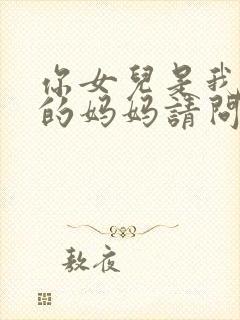 你女兒是我
的妈妈請問
敖夜